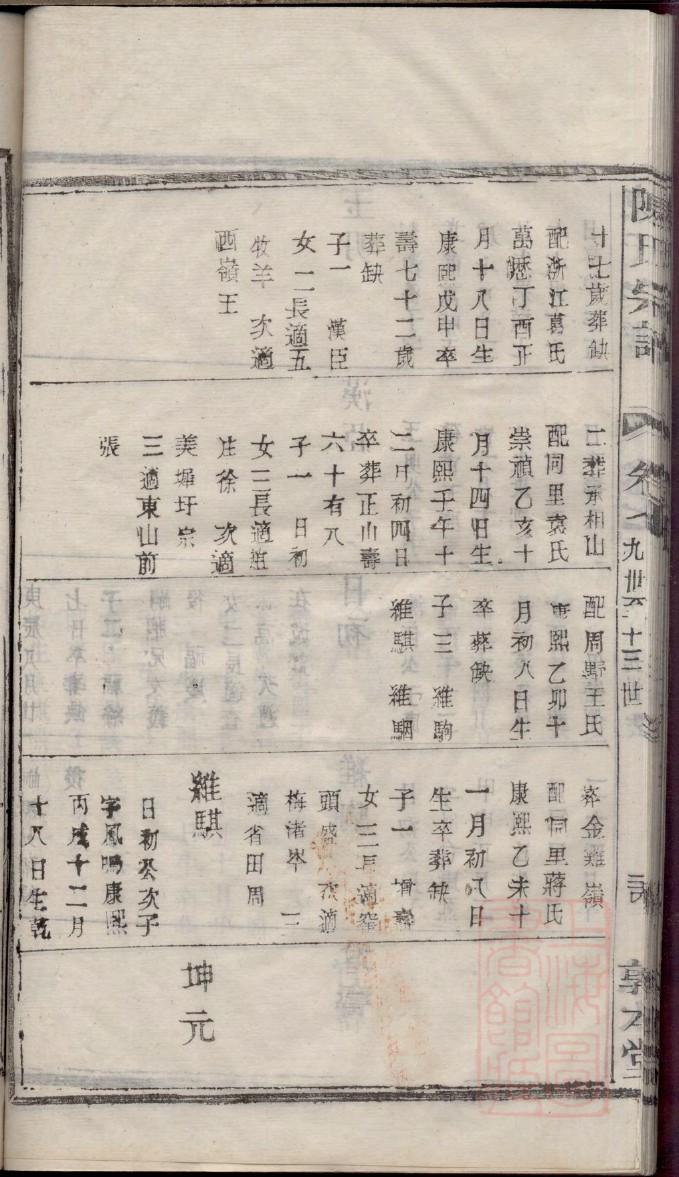 陳氏宗譜
卷
九世至十三世
敦本堂
十七歲葬缺
配浙江葛氏
萬厯丁酉正
月十八日生
康熙戊申卒
壽七十二歲
葬缺
子一 漢臣
女二長適五
牧羊 次適
西嶺王
二葬丞相山
配同里袁氏
崇禎乙亥十
月十四日生
康熙壬午十
二月初四日
卒葬正山壽
六十有八
子一 日初
女三長適
庄徐 次適
美墀圩宗
三適東山前
張
配周野王氏
康熙乙卯十
月初八日生
卒葬缺
子三 維駒
維騏 維駰
葬金雞嶺
配同里蔣氏
康熙乙未十
一月初八日
生卒葬缺
子一 增壽
女三長適窑
頭盛 次適
梅渚岑 三
適省田周
維騏
日初公次子
字鳳鳴康熙
丙戌十二月
十八日生乾
坤元